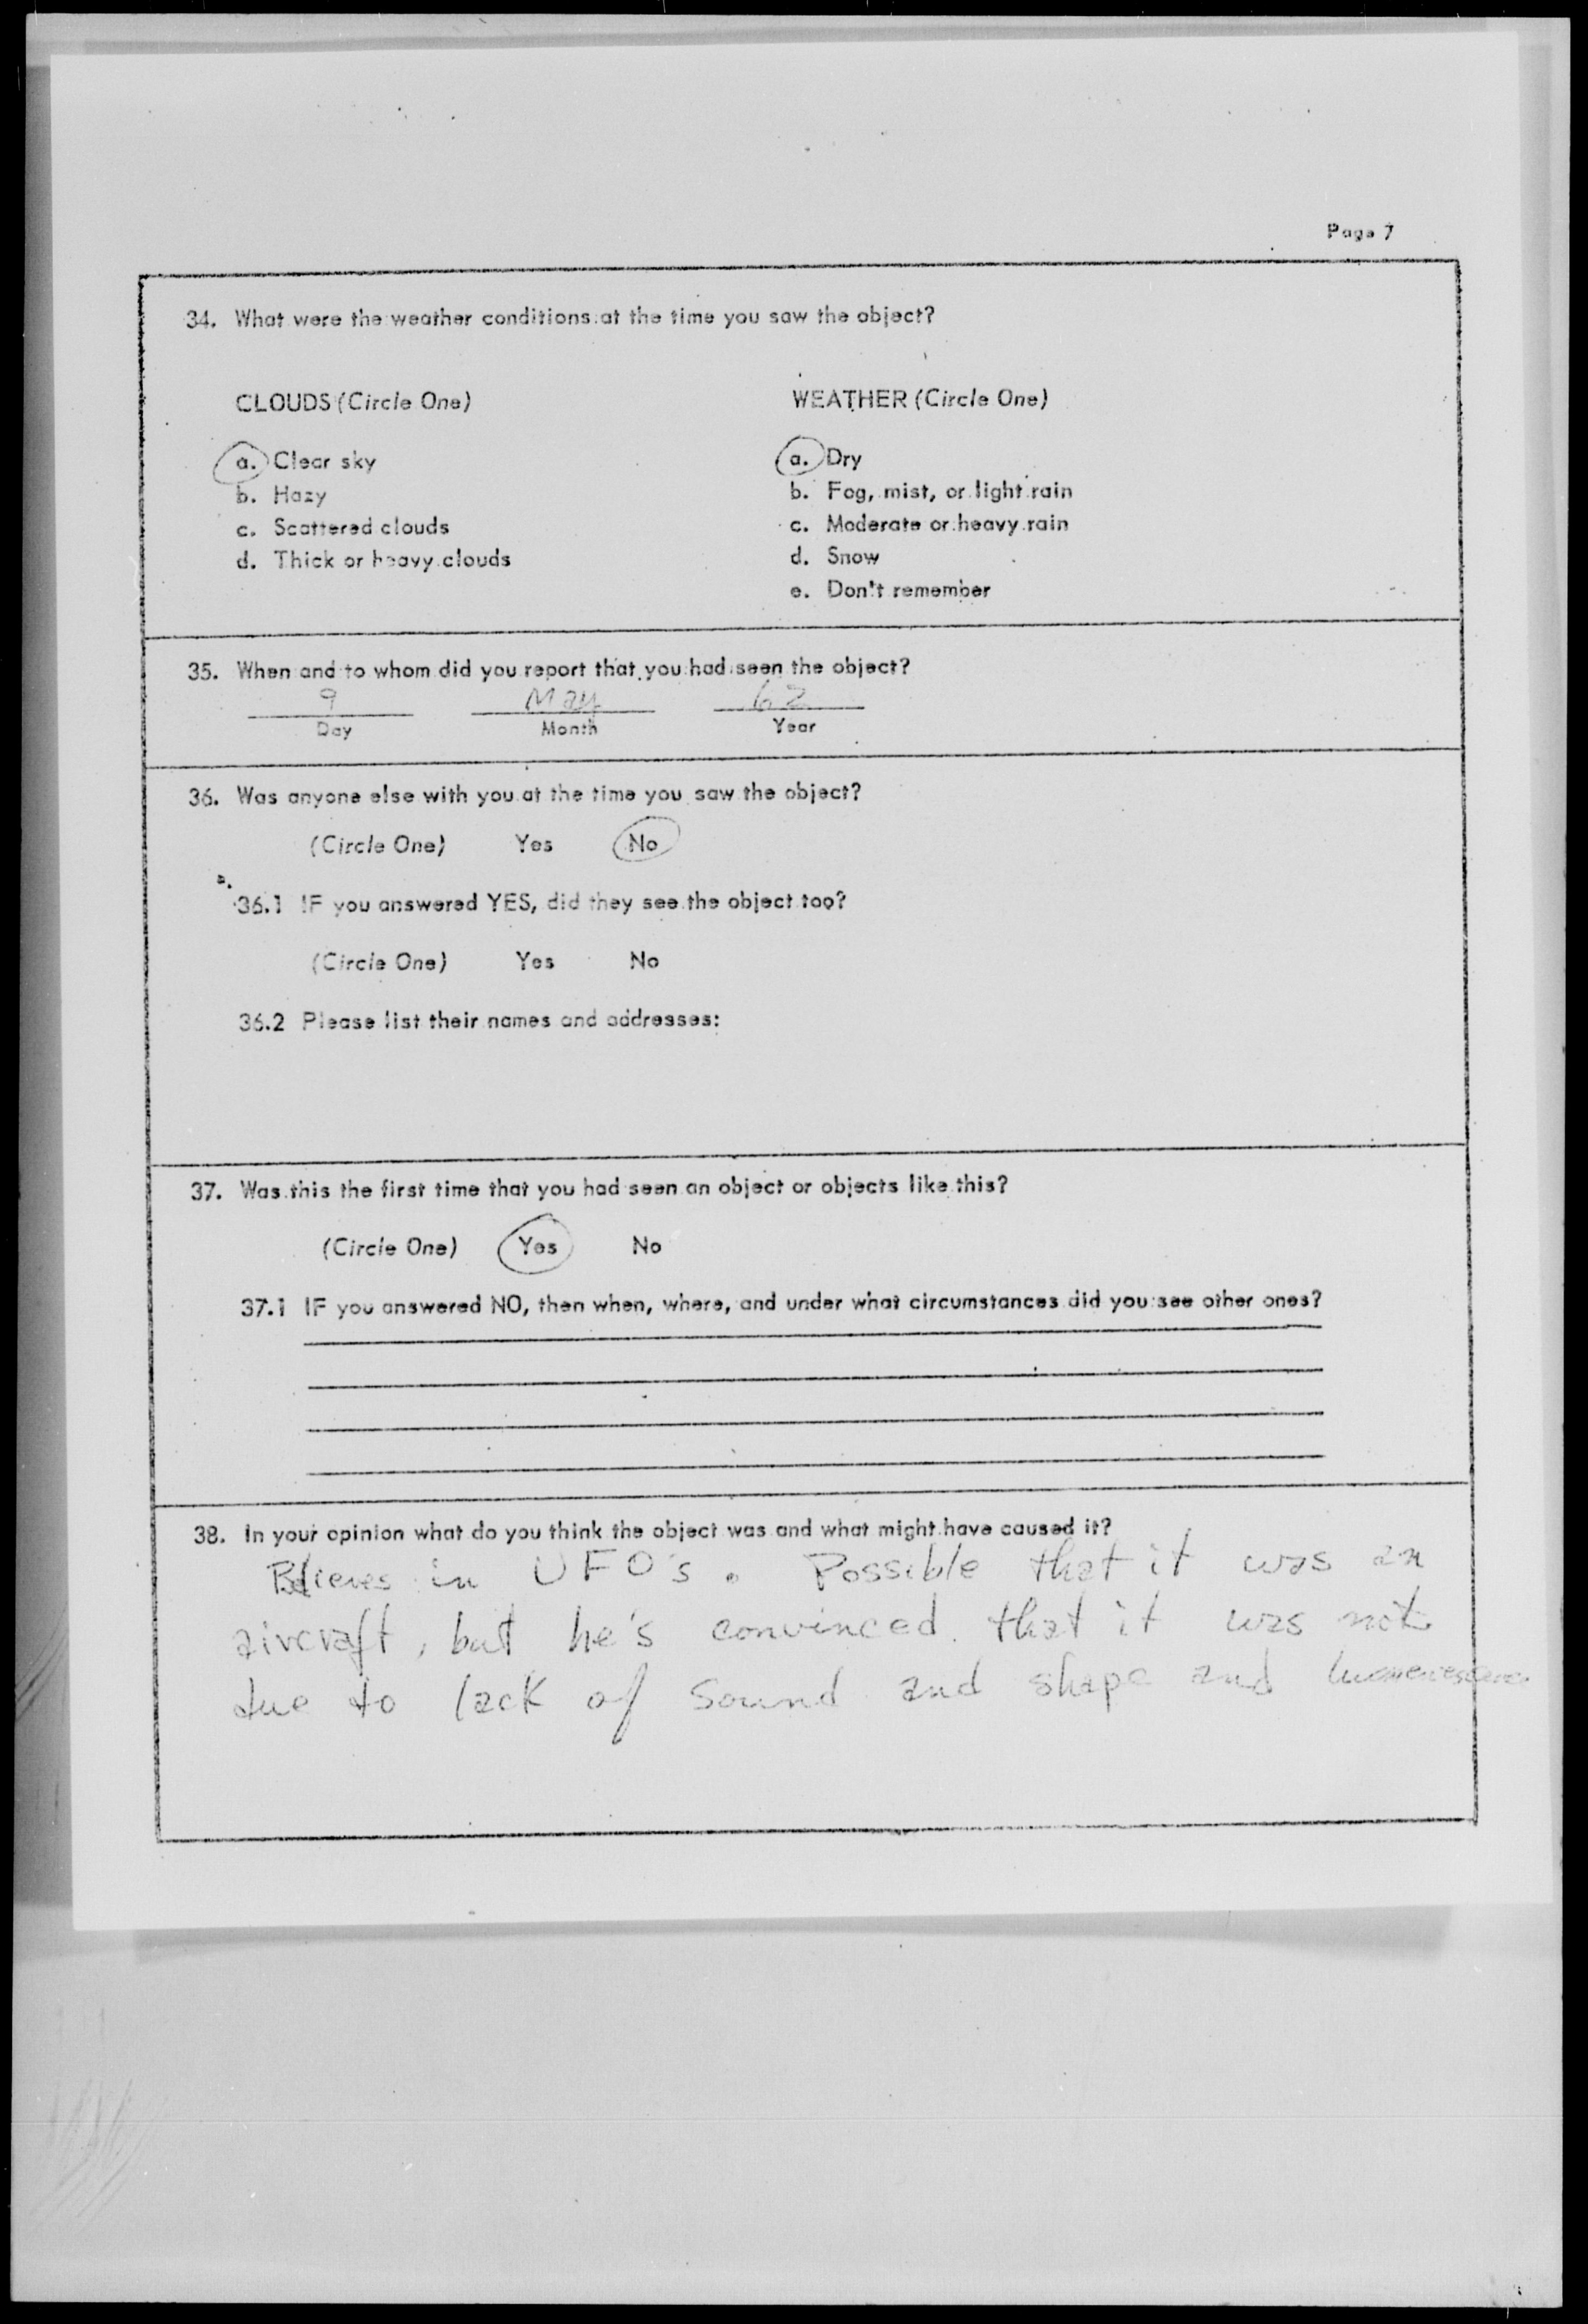 Page 7
34. What were the weather conditions at the time you saw the object?
CLOUDS (Circle One)
a. Clear sky
b. Hazy
c. Scattered clouds
d. Thick or heavy clouds
WEATHER (Circle One)
a. Dry
b. Fog, mist, or light rain
c. Moderate or heavy rain
d. Snow
e. Don't remember
35. When and to whom did you report that you had seen the object?
9 May 62
Day Month Year
36. Was anyone else with you at the time you saw the object?
(Circle One) Yes No
36.1 IF you answered YES, did they see the object too?
(Circle One) Yes No
36.2 Please list their names and addresses:
37. Was this the first time that you had seen an object or objects like this?
(Circle One) Yes No
37.1 IF you answered NO, then when, where, and under what circumstances did you see other ones?
38. In your opinion what do you think the object was and what might have caused it?
Believes in UFO's. Possible that it was an
aircraft, but he's convinced that it was not
due to lack of sound and shape and